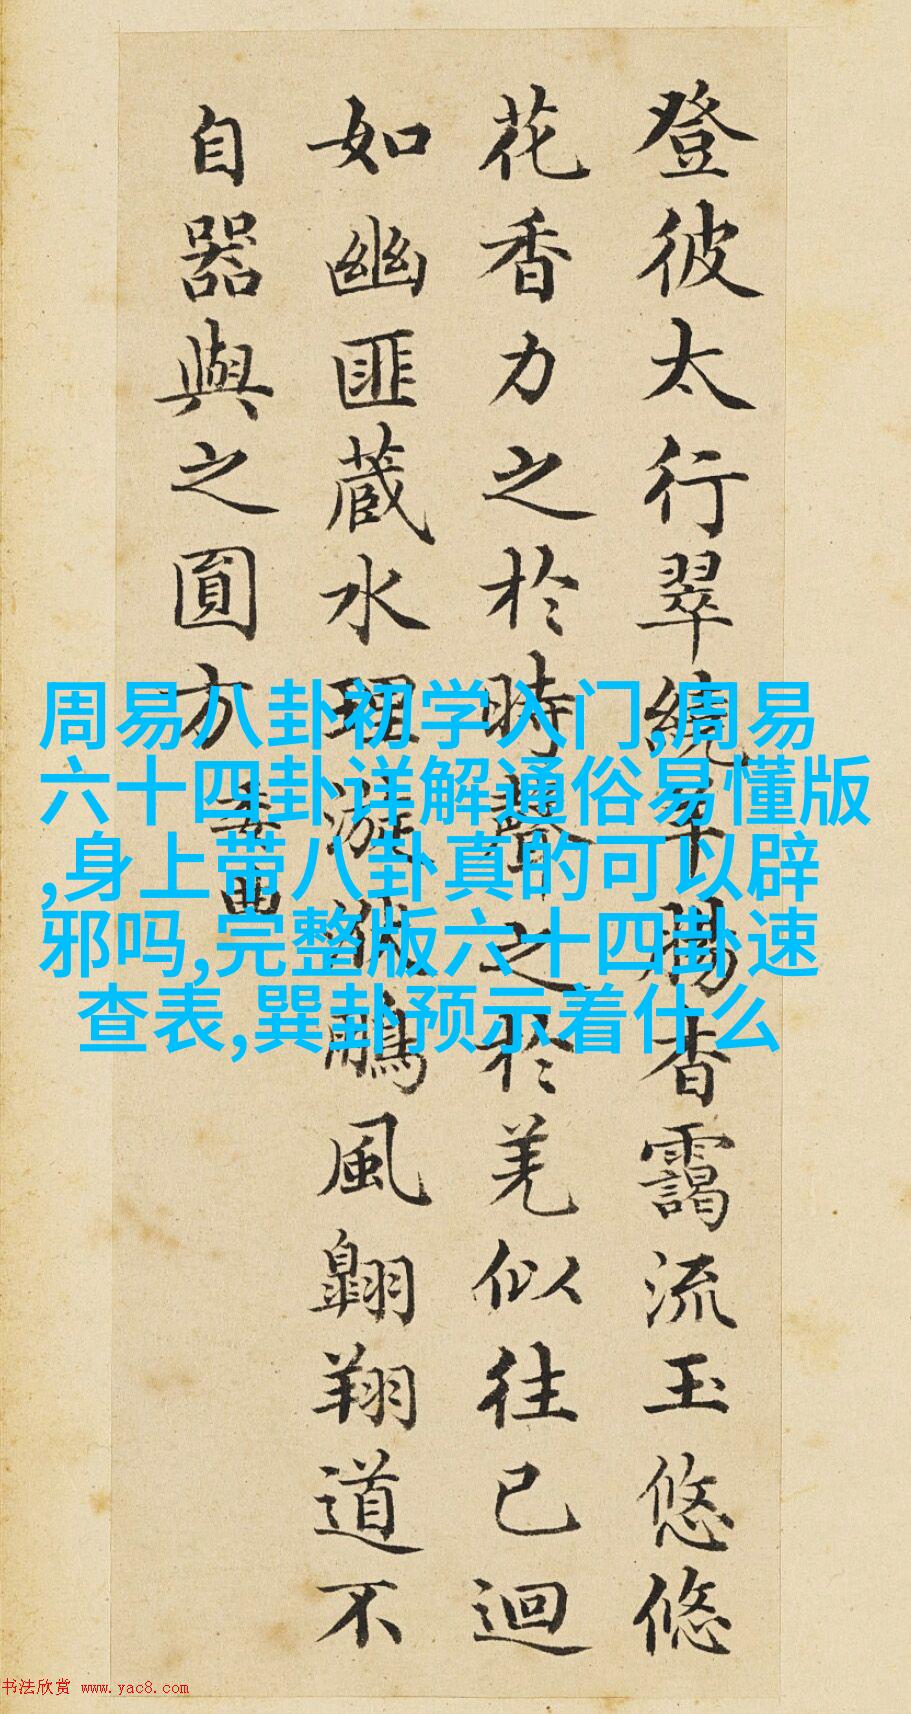 登彼太行翠繞羊腸杳靄流玉悠悠
花香力之於時聲之於羌似往已迴
如幽匪蔵水理漩洑鵬風翺翔道不
自器與之圓方
委曲
周易八卦初学入门,周易
六十四卦详解通俗易懂版
,身上带八卦真的可以辟
邪吗,完整版六十四卦速
查表,巽卦预示着什么
书法欣赏 www.yac8.com